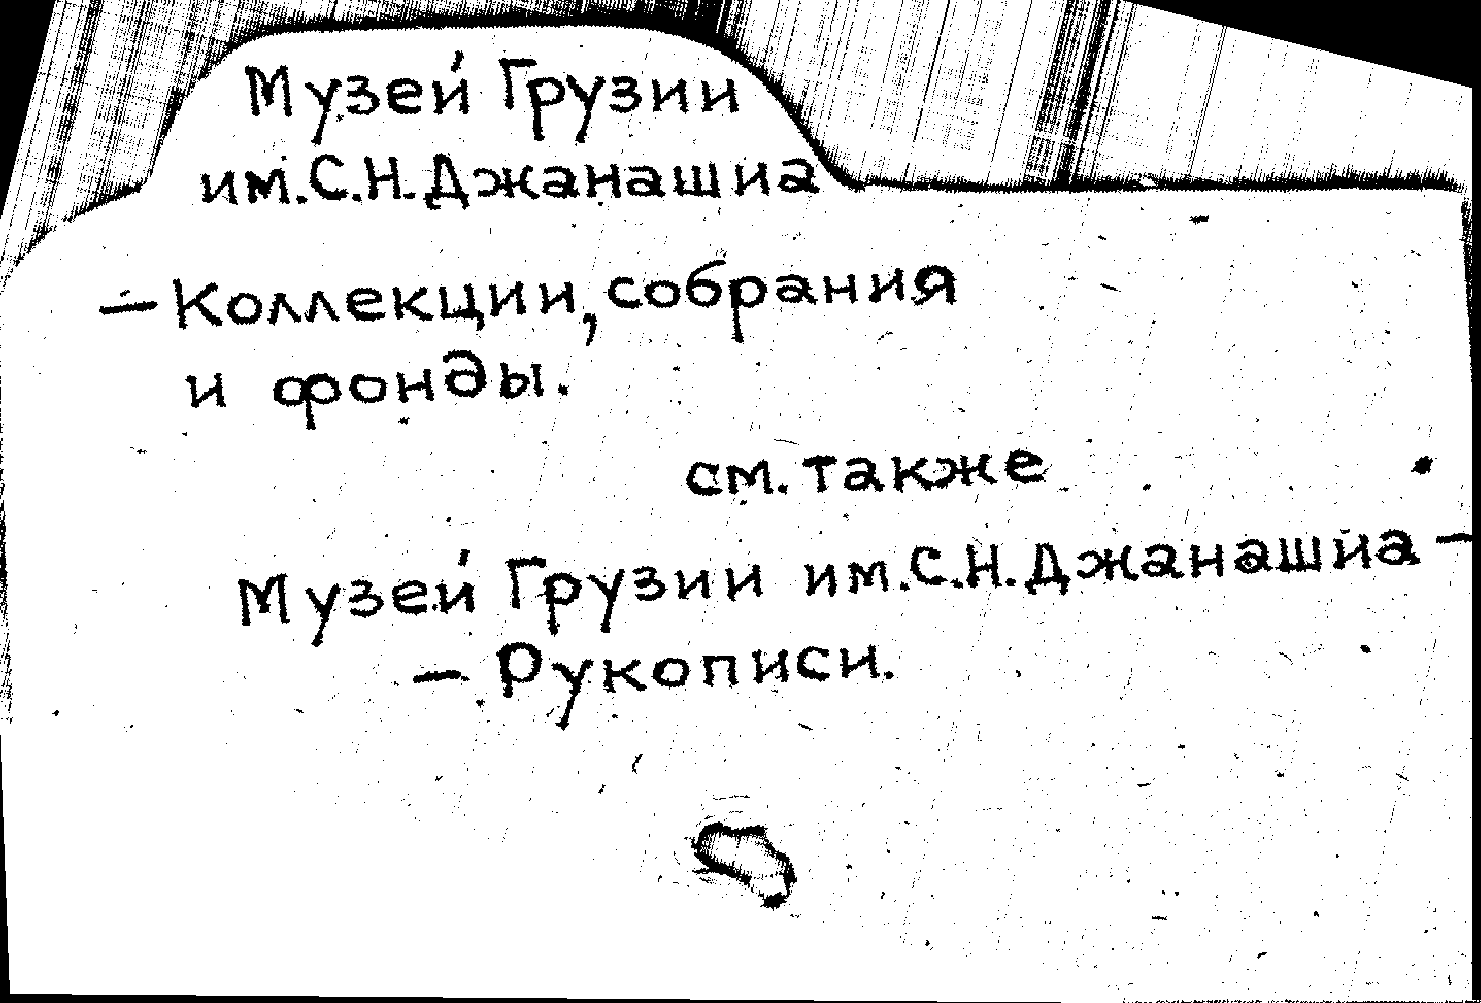 Музей Грузии
им. С. Н. Джанашиа
— Коллекции, собрания
и фонды.
см. также
Музей Грузии им. С. Н. Джанашиа —
— Рукописи.